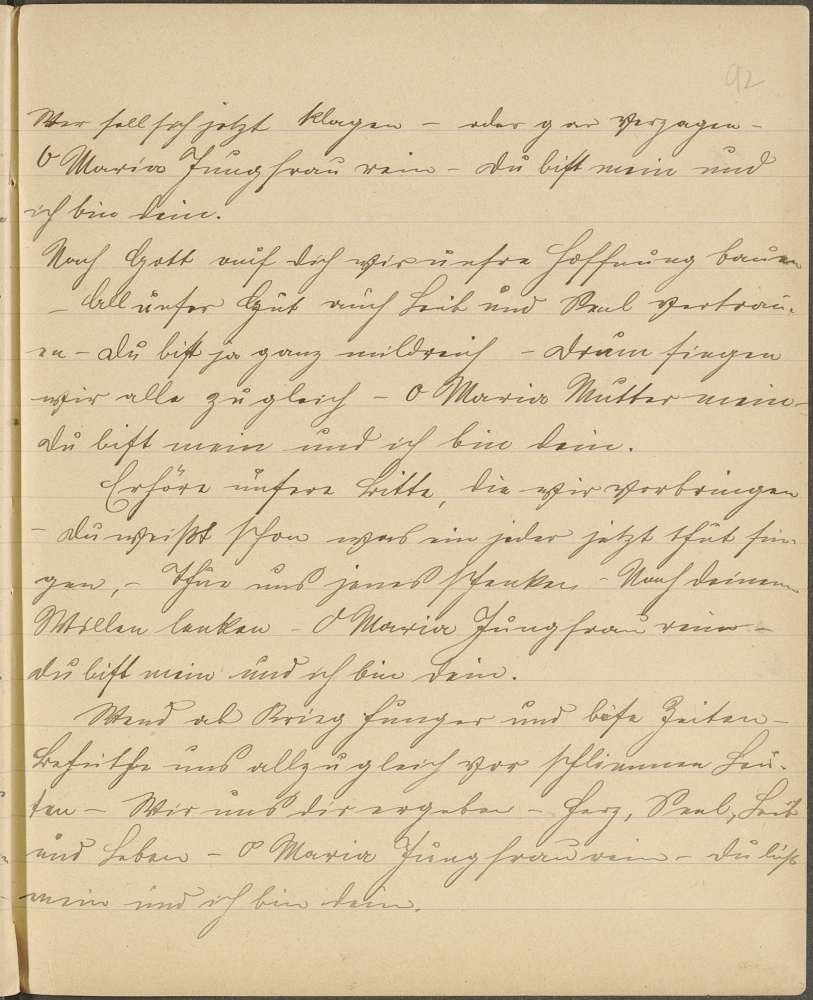 92
Wer soll sich jetzt klagen – oder gar verzagen –
O Maria Jungfrau rein – du bist mein und
ich bin dein.
Nach Gott auf dich wir unsre Hoffnung bauen
– All unser Gut auch Leib und Seel vertrau-
en – du bist ja ganz mildreich – drum singen
wir alle zugleich – O Maria Mutter mein –
du bist mein und ich bin dein.
Erhöre unsere Bitte, die wir vorbringen
– du weißt schon was ein jeder jetzt thut sin-
gen, – Thue uns jenes schenken – Nach deinem
Willen lenken – O Maria Jungfrau rein –
du bist mein und ich bin dein.
Wend ab Krieg Hunger und böse Zeiten –
Behüthe uns allzugleich vor schlimmen Leu-
ten – Wir uns dir ergeben – Herz, Seel, Leib
und Leben – O Maria Jungfrau rein – du bist
mein und ich bin dein.